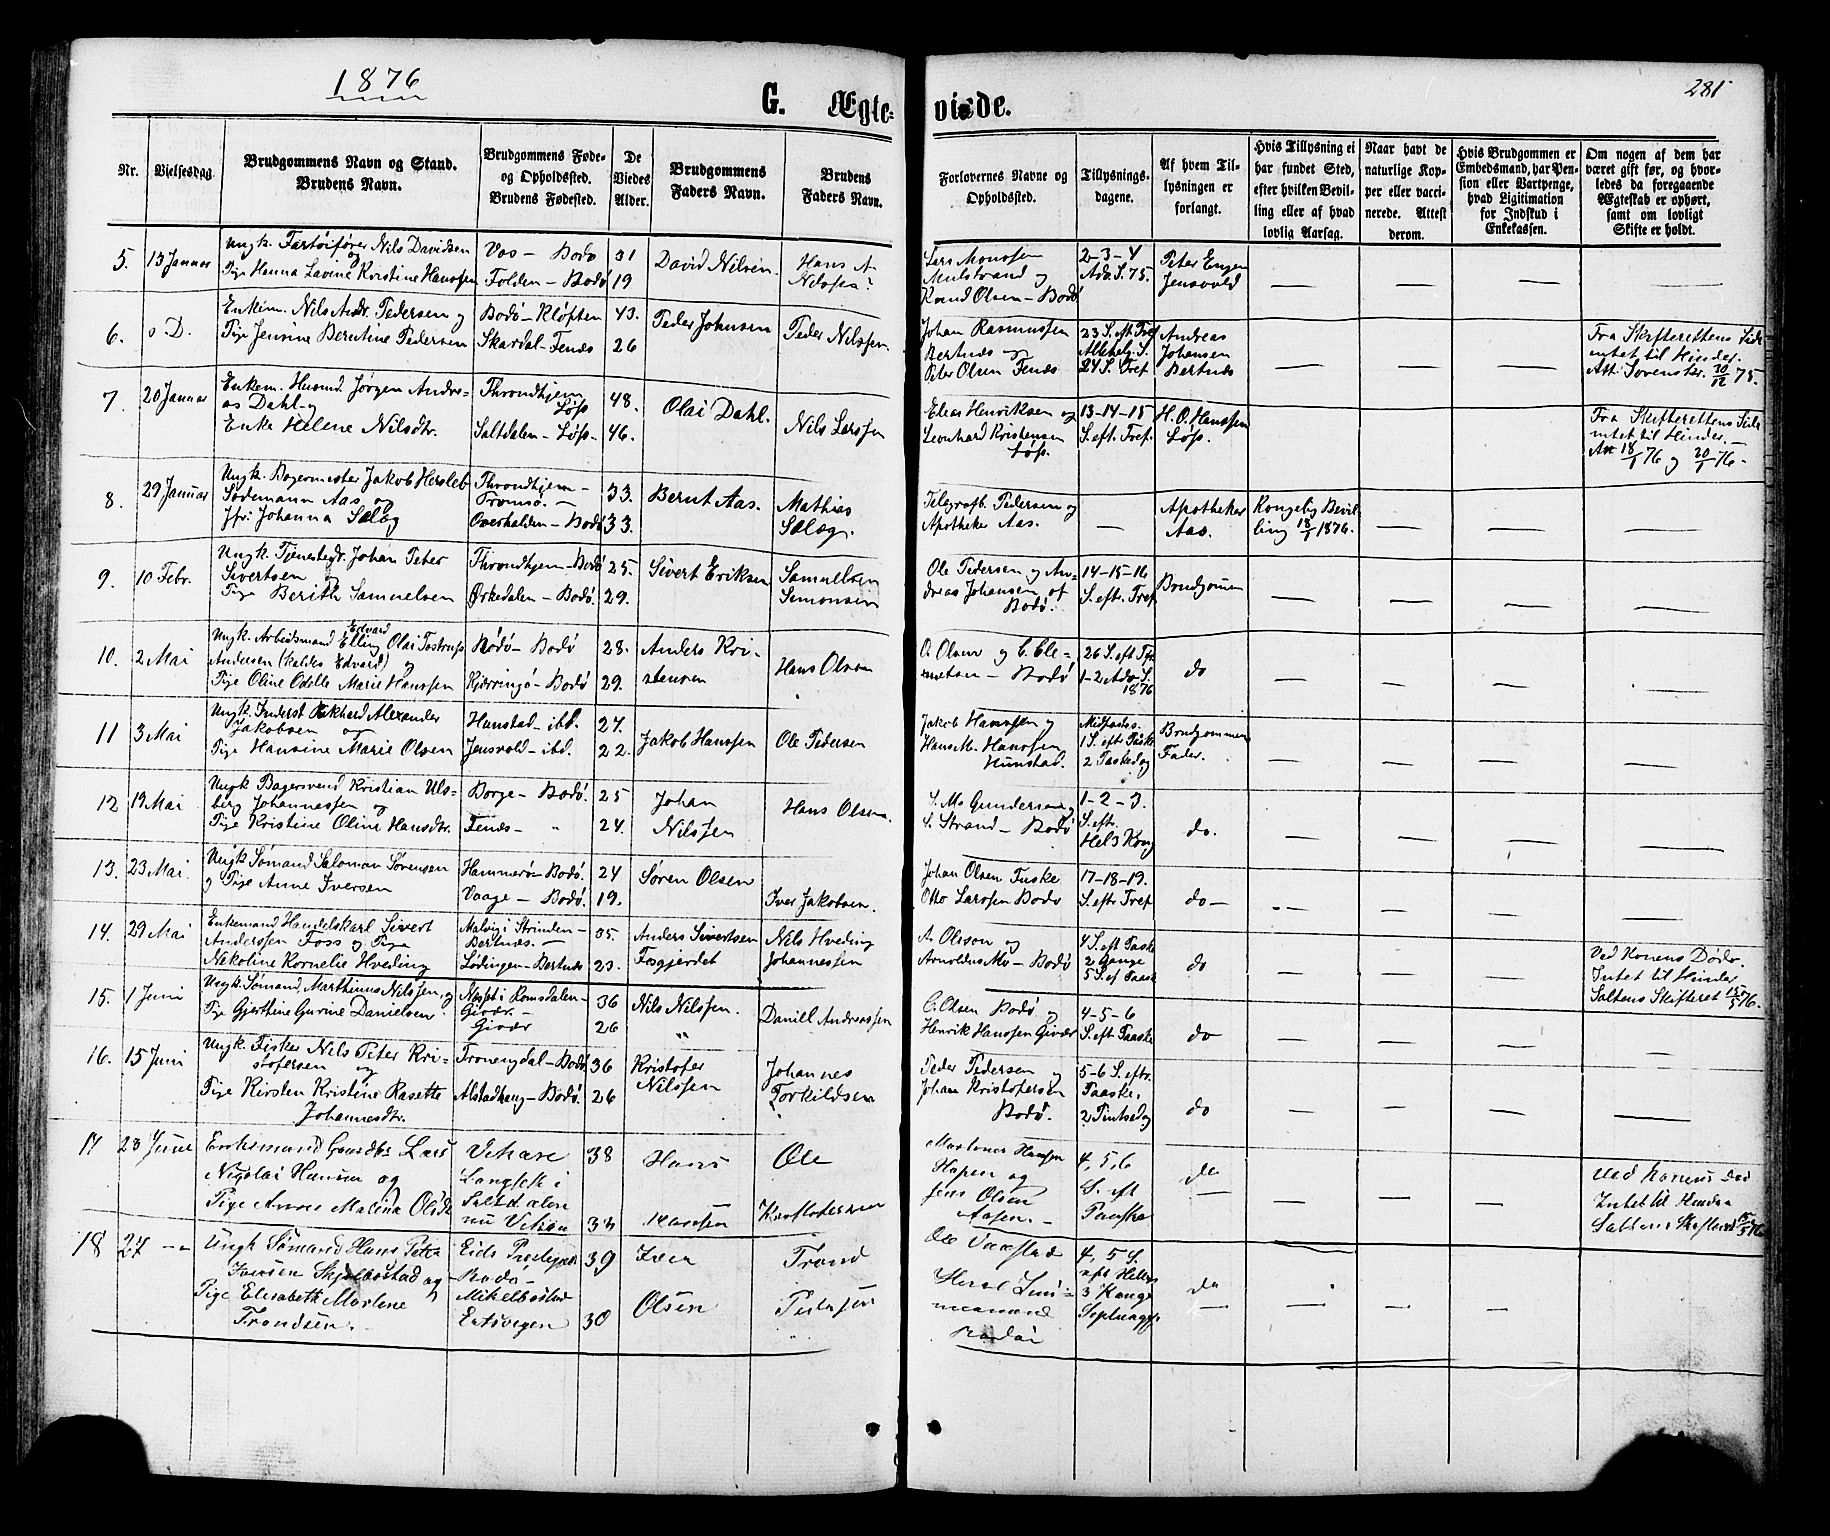 1876
281
G. Ægte-viede.
Nr.
Vielsesdag.
Brudgommens Navn og Stand.
Brudens Navn.
Brudgommens Føde-
og Opholdssted.
Brudens Fødested.
De
Viedes
Alder.
Brudgommens
Faders Navn.
Brudens
Faders Navn.
Forlovernes Navne og
Opholdssted.
Tillysnings-
dagene.
Af hvem Til-
lysningen er
forlangt.
Hvis Tillysning ei
har fundet Sted,
efter hvilken Bevil-
ling eller af hvad
lovlig Aarsag.
Naar havt de
naturlige Kop-
per eller vacci-
nerede. Attest
derom.
Hvis Brudgommen er
Embedsmand, har Pen-
sion eller Vartpenge,
hvad Ligitimation
for Indskud i
Enkekassen.
Om nogen af dem har
været gift før, og hvor-
ledes da foregaaende
Ægteskab er ophørt,
samt om lovligt
Skifte er holdt.
5. 13 Januar
Ungk. Fartøifører Nils Davidsen
og
Pige Hanna Lavine Kristine Hanssen
Vos – Bodø 31
Folden – Bodø 19
David Nilsen
Hans A
Nilssen
Lars Monssen
Mulstrand og
Knud Olsen – Bodø
2–3–4
Adv. S. 75.
Peter Engen
Jensvold
6. s D.
Enkem. Nils Andr. Pedersen og
Pige Jensine Berntine Pedersen
Bodø – Kløften 43.
Skardal – Fenæs 26
Peder Johnsen
Peder Nilssen
Johan Rasmussen
Bertnæs og
Peter Olsen Fenæs
23 S. eft Tref
Allehelg. S.
24 S. Tref
Andreas
Johansen
Bertnæs
Fra Skifterettens Side
intet til Hinder.
Att. Sorenskr. 30/12 75.
7. 20 Januar
Enkem. Husmd. Jørgen Andre-
as Dahl og
Enke Helene Nilsdtr.
Throndhjem
Løp 48.
Saltdalen – Løp. 46.
Olai Dahl.
Nils Larssen
Elias Henriksen og
Leonhard Kristensen
Løp.
13–14–15
S. eft. Tref.
H. O. Hanssen
Løp.
Fra Skifterettens Side
intet til Hinder. –
Att 18/1 76 og 20/1 76.
8. 29 Januar
Ungk. Bagermester Jakob Hersleb
Sødemann Aas og
Jfr. Johanna Sælæg
Throndhjem –
Tromsø. – 33.
Overhalden – Bodø 33.
Bernt Aas.
Mathias
Sælæg.
Telegrafb. Pedersen og
Apotheker Aas.
Apotheker
Aas.
Kongelig Bevil-
ling 18/1 1876.
9. 10 Febr.
Ungk. Tjenestedr. Johan Peter
Sivertsen og
Pige Berith Samuelsen
Throndhjem – Bodø 25.
Ørkedalen – Bodø. 29.
Sivert Eriksen
Samuelsen
Simonsen
Ole Pedersen og An-
dreas Johansen af
Bodø.
14–15–16
S. eft. Tref
Brudgomen
10. 2 Mai
Ungk. Arbeidsmand Edvard Elling Olai Tostrup
Andersen (kaldes Edvard) og
Pige Oline Odelle Marie Hanssen
Bodø – Bodø 28.
Kjerringø – Bodø 29.
Anders Kri-
stensen
Hans Olsen
O. Olsen og C. Cle-
metsen – Bodø
26 S. eft Tref
1–2 Adv. S.
1876
do
11 3 Mai
Ungk. Inderst Ekhard Alexander
Jakobsen og
Pige Hansine Marie Olsen
Hunstad – ibd. 27.
Jensvold – ibd. 22.
Jakob Hanssen
Ole Pedersen
Jakob Hanssen og
Hans M. Hanssen
Hunstad.
Midfastes.
1 S. eftr Paask.
2 Paaskedag
Brudgommens
Fader.
12 19 Mai
Ungk Bagersvend Kristian Uls-
berg Johannessen og
Pige Kristine Oline Hansdtr.
Borge – Bodø. 25
Fenæs – „ 24.
Johan
Nilssen
Hans Olsen
S. Mo Gundersen og
S. Strand – Bodø
1–2–3.
S. eft.
Hel 3 Kong
do.
13. 23 Mai
Ungk Sømand Salomon Sørensen
og Pige Anne Iversen
Hammerø – Bodø. 24
Vaage – Bodø. 19.
Søren Olsen
Iver Jakobsen.
Johan Olsen Fuske
Otto Larssen Bodø
17–18–19.
S. eftr Tref
do –
14. 29 Mai
Enkemand Handelskarl Sivert
Anderssen Foss og Pige
Nikoline Kornelie Hveding
Malvig i Strinden –
Bertnæs. – 35.
Lødingen – Bertnæs 23.
Anders Sivertsen
Fosgjerdet
Nils Hveding
Johannessen
A. Olsson og
Arnoldus Mo – Bodø
4 S. eft Paaske
2 Gange
5 S. ef Paask
do
Ved Konens Død.
Intet til Hinder
Saltens Skifteret 15/5 76.
15. 1 Juni
Ungk Sømand Marthinus Nilssen, og
Pige Gjertine Gurine Danielsen
Næsset i Romsdalen –
Givær. – 36
Givær 26
Nils Nilssen.
Daniel Andreassen
O. Olsen Bodø og
Henrik Hanssen Givær
4–5–6
S. eft Paaske
do
16. 15 Juni
Ungk. Fisker Nils Peter Kri-
stofersen og
Pige Kirsten Kristine Rasette
Johannesdtr.
Tronengdal – Bodø 36
Alstadhaug – Bodø. 26
Kristofer
Nilssen
Johannes
Torkildsen
Peder Pedersen og
Johan Kristofersen
Bodø.
5–6 S. eftr.
Paaske.
2 Pintsedag
do
17 23 June
Enkemand Gaardbr Lars
Nicolai Hansen og
Pige Anne Malena Olsdt
38
Saltdalen
34
Hans
Hanssen
Ole
Kristofersen
Hansen
og
Jens Olsen
Aasen. –
4, 5, 6
S. eft
Paaske
do
Ved Konens Død
Intet til Hinder
Saltens Skifteret 15/5 76
18 27 – „
Ungk Sømand Hans Peter
Iversen Skjelbostad og
Pige Elisabeth Marlene
Trondsen. –
Eids Prestegjeld
Bodø –
39
30
Iver
Olsen
Trond
Pedersen
Ole
Bodøe
4, 5 S.
eft Hellig
3 Konge
Septuages.
do